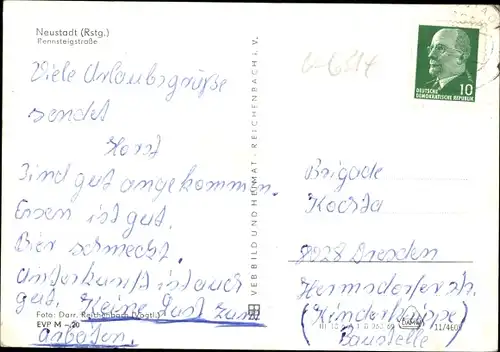 Neustadt (Rstg.)
Rennsteigstraße
Viele Urlaubsgrüße
sendet
Horst
Sind gut angekommen.
Essen ist gut.
Bier schmeckt.
Unterkunft ist auch
gut. Keine Lust zum
arbeiten.
Foto: Darr, Reichenbach (Vogtl.)
EVP M –.20
VEB BILD UND HEIMAT · REICHENBACH i. V.
10
DEUTSCHE
DEMOKRATISCHE REPUBLIK
Brigade
8028 Dresden
Hermsdorfer Str.
(Kinderkrippe)
Baustelle